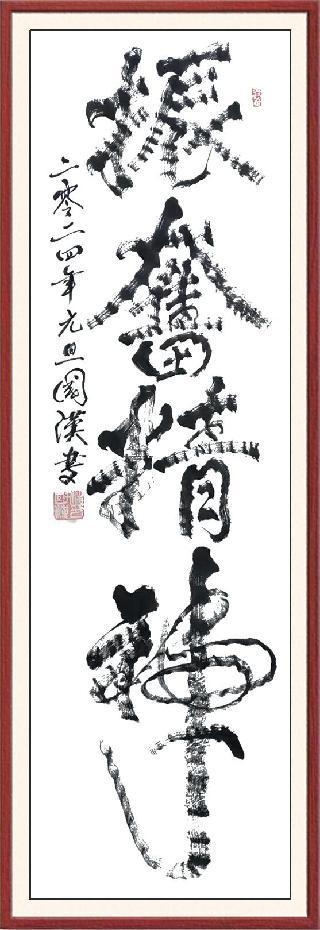 振奮精神
二零二四年元旦國漢書